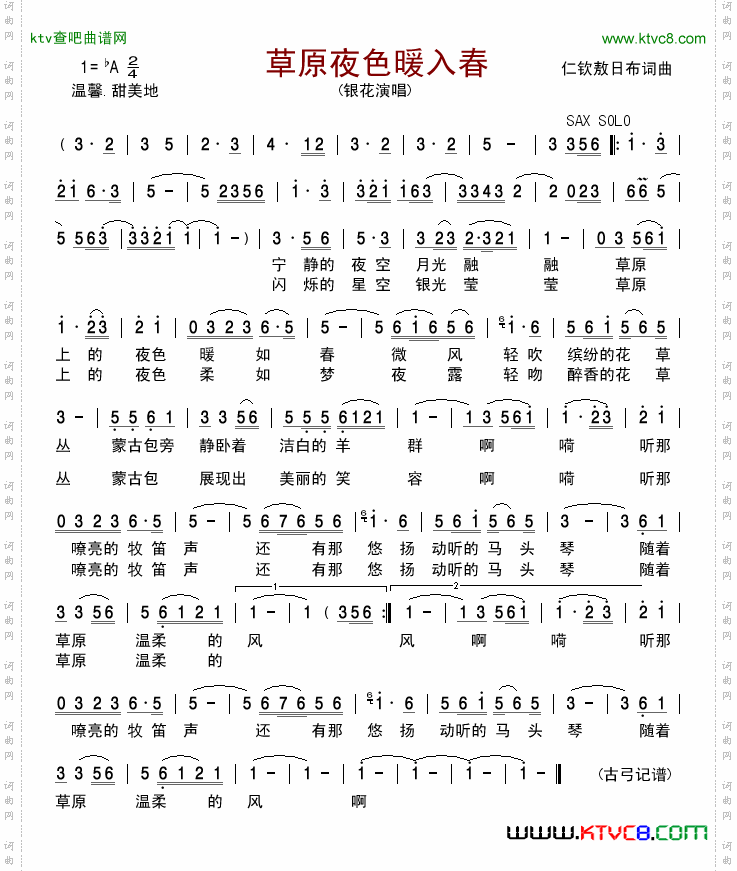 ktv查吧曲谱网 www.ktvc8.com
1=♭A 2/4 草原夜色暖入春 仁钦敖日布词曲
温馨.甜美地 (银花演唱)
SAX SOLO
( 3· 2 | 3 5 | 2· 3 | 4· 12 | 3· 2 | 3· 2 | 5 - | 3 356 |: 1· 3 |
21 6·3 | 5 - | 5 2356 | 1· 3 | 321 163 | 2343 2 | 2 023 | 66 5 |
5 563 | 3321 1 | 1 -) | 3· 5 6 | 5· 3 | 3 23 2·321 | 1 - | 0 3 561 |
宁 静的 夜 空 月光 融 融 草原
闪 烁的 星 空 银光 莹 莹 草原
1· 23 | 2 1 | 0323 6·5 | 5 - | 5 6165 6 | 61· 6 | 5 61 565 |
上 的 夜色 暖 如 春 微 风 轻 吹 缤纷的花 草
上 的 夜色 柔 如 梦 夜 露 轻 吻 醉香的花 草
3 - | 5 5 6 1 | 3 3 56 | 5 5 5 6121 | 1 - | 1 3561 | 1· 23 | 2 1 |
丛 蒙古包旁 静卧着 洁白的 羊 群 啊 嗬 听那
丛 蒙古包 展现出 美丽的 笑 容 啊 嗬 听那
0323 6·5 | 5 - | 5 67656 | 61· 6 | 5 61 565 | 3 - | 3 6 1 |
嘹亮的 牧 笛 声 还 有那 悠 扬 动听的 马 头 琴 随着
嘹亮的 牧 笛 声 还 有那 悠 扬 动听的 马 头 琴 随着
1 2
3 3 56 | 5 6121 | 1 - | 1 ( 356 :| 1 - | 1 3561 | 1· 23 | 2 1 |
草原 温柔 的 风 风 啊 嗬 听那
草原 温柔 的
0323 6·5 | 5 - | 5 67656 | 61· 6 | 5 61 565 | 3 - | 3 6 1 |
嘹亮的 牧 笛 声 还 有那 悠 扬 动听的 马 头 琴 随着
3 3 56 | 5 6121 | 1 - | 1 - | 1 - | 1 - ‖ (古弓记谱)
草原 温柔 的 风 啊
www.KTVC8.com